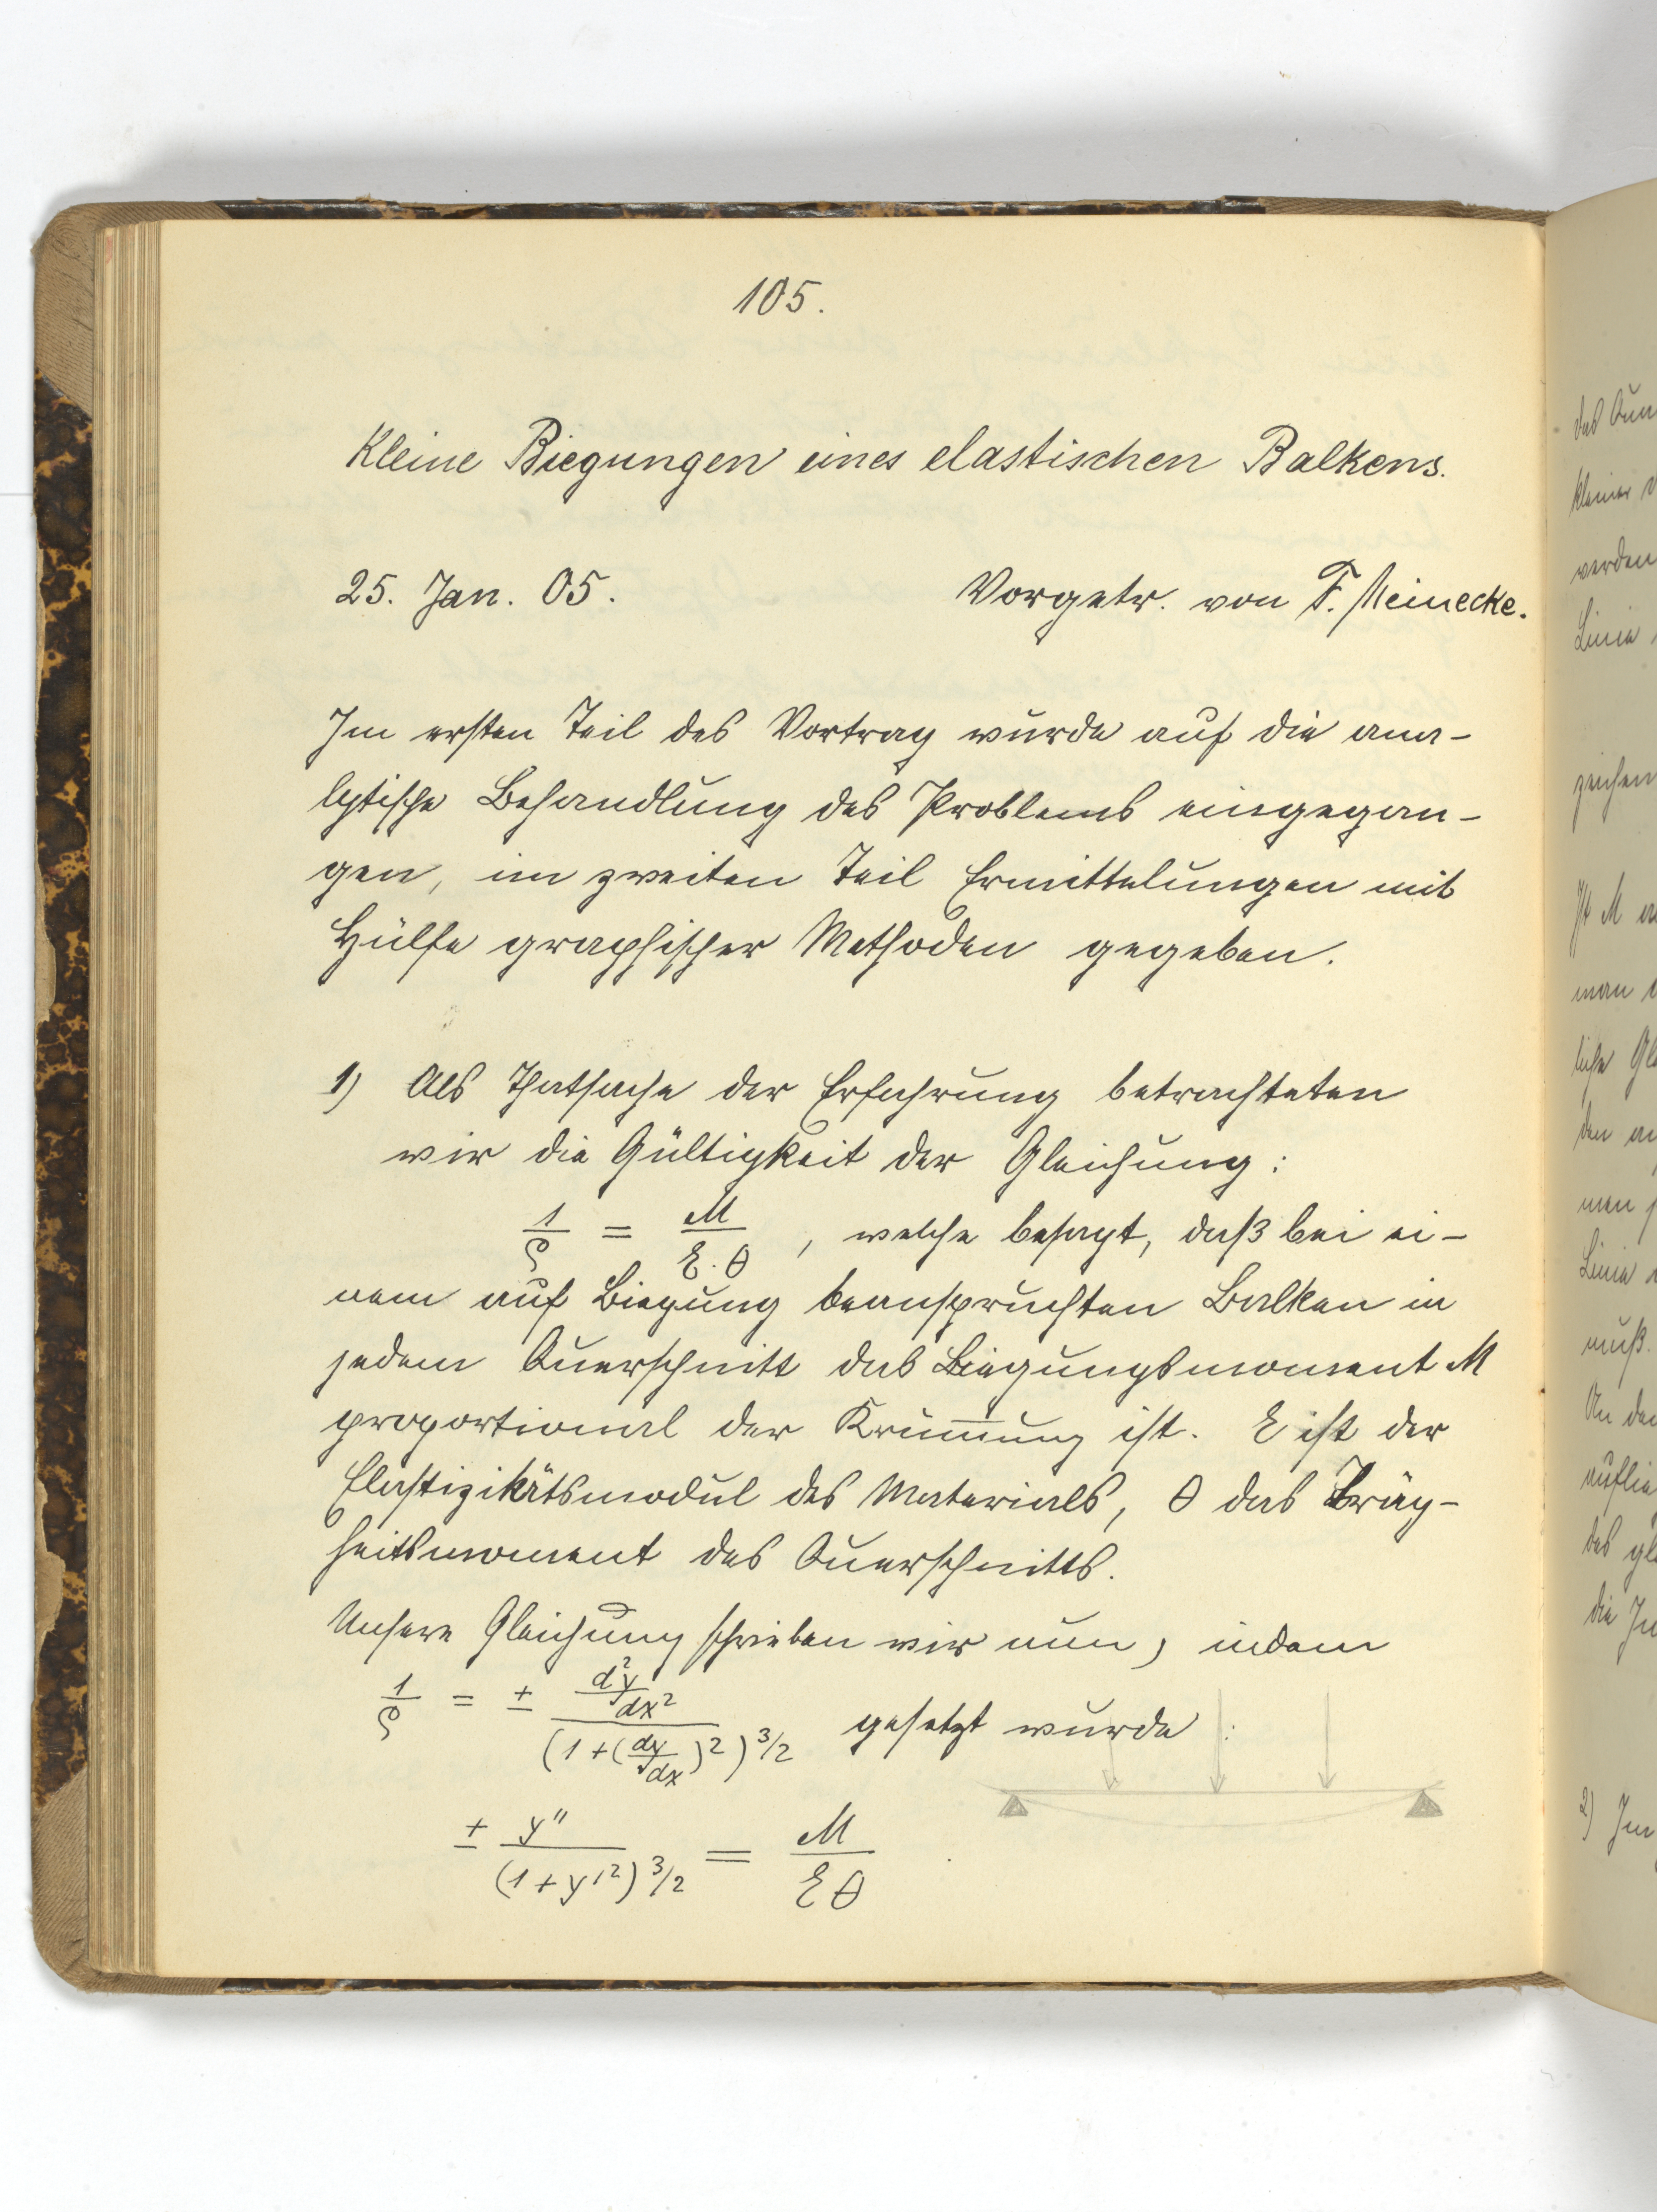 105.
Kleine Biegungen eines elastischen Balkens.
25. Jan. 05. Vorgetr. von F. Meinecke.
Im ersten Teil des Vortrag wurde auf die ana-
lytische Behandlung des Problems eingegan-
gen, im zweiten Teil Ermittelungen mit
Hülfe graphischer Methoden gegeben.
1) Als Thatsache der Erfahrung betrachteten
wir die Gültigkeit der Gleichung:
1/ρ = M/(E·θ), welche besagt, daß bei ei-
nem auf Biegung beanspruchten Balken in
jedem Querschnitt das Biegungsmoment M
proportional der Krüm̅ung ist. E ist der
Elastizitätsmodul des Materials, θ das Träg-
heitsmoment des Querschnitts.
Unsere Gleichung schrieben wir nun, indem
1/ρ = ± (d²y/dx²)/(1+(dy/dx)²)^3/2 gesetzt wurde:
± y''/(1+y'²)^3/2 = M/(Eθ)
das
kleiner
werden
Linie
zeichen
Ist M
man
liche
den
men
Linie
muß.
An
des
die
2) Im